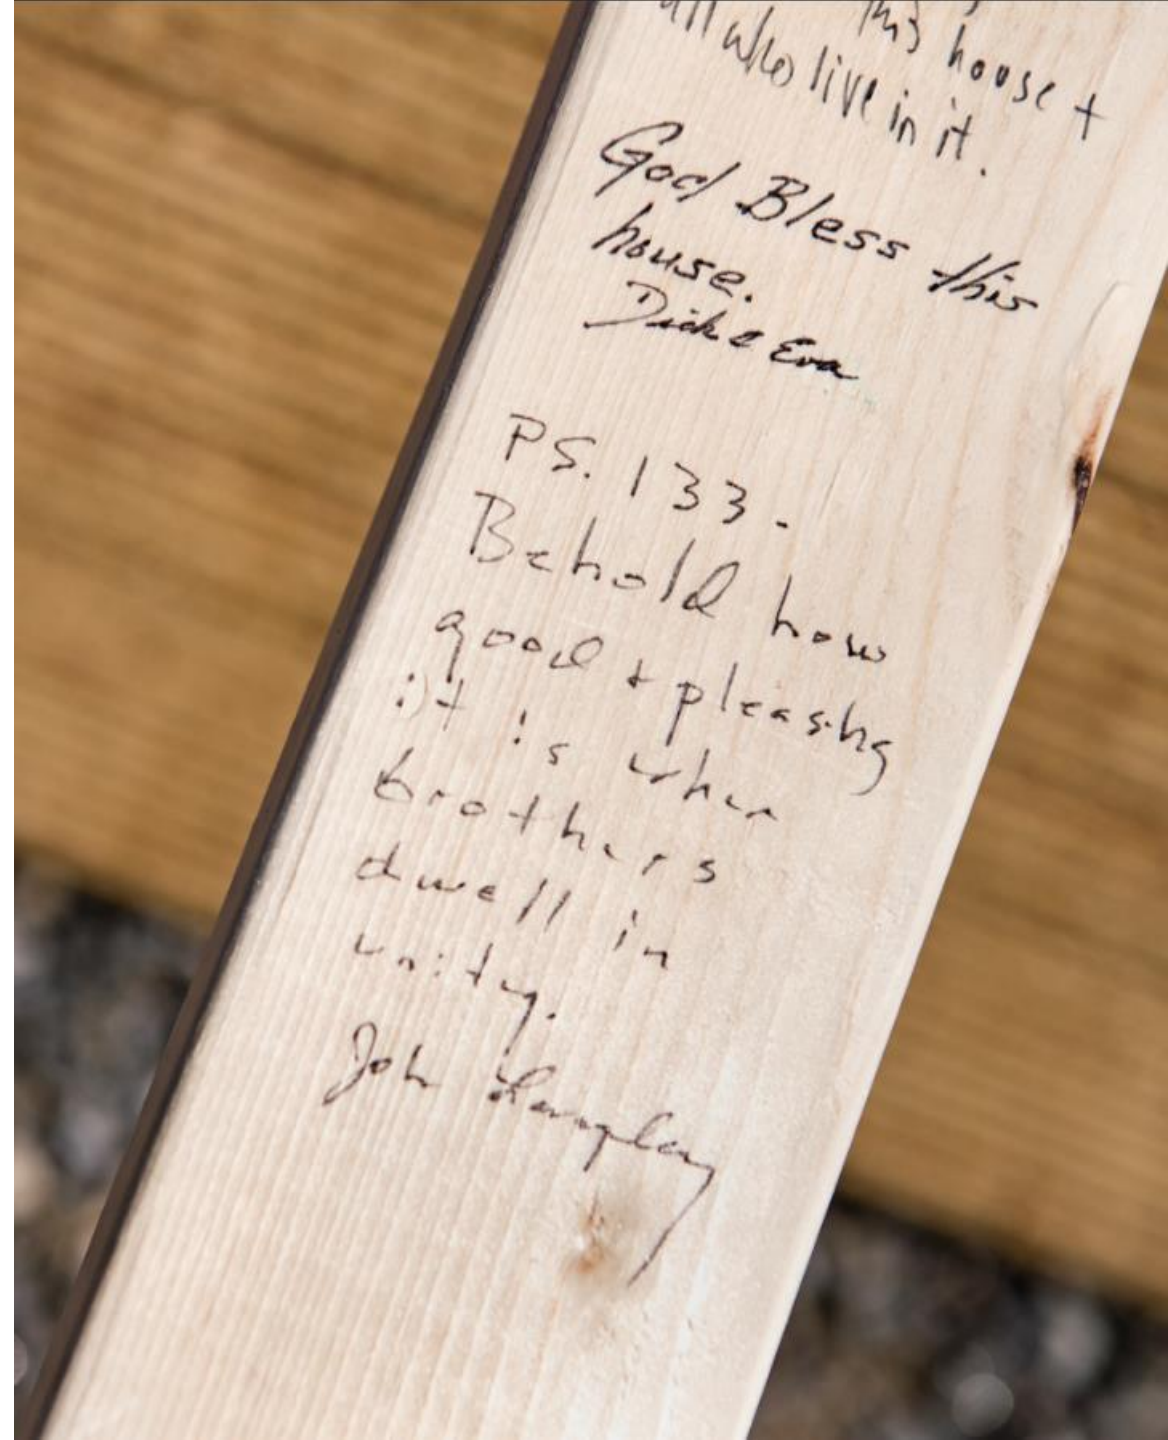 this house +
all who live in it.
God Bless this
house.
Dick & Eva
PS. 133.
Behold how
good + pleasing
it is when
brothers
dwell in
unity.
John Langley